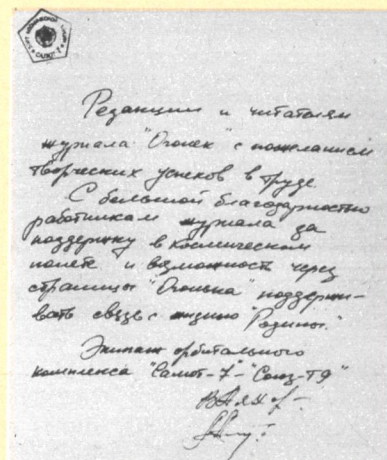 Редакции и читателям
журнала "Огонек" с пожеланием
творческих успехов в труде
С большой благодарностью
работникам журнала за
поддержку в космическом
полете и возможность через
страницы "Огонька" поддержи-
вать связь с жизнью Родины."
Экипаж орбитального
комплекса "Салют-7"-"Союз-Т9"
ВЛях